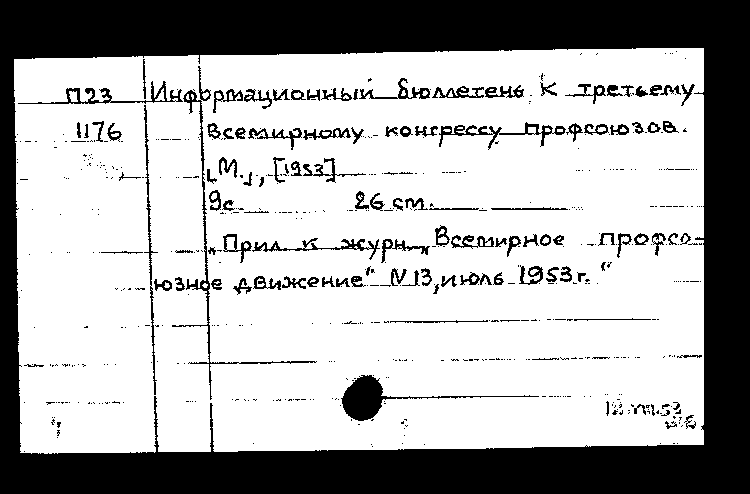 П23 Информационный бюллетень к третьему
1176 Всемирному конгрессу профсоюзов.
[М.], [1953]
9с 26 см.
„Прил. к журн. „Всемирное профсо-
юзное движение“ N 13, июль 1953 г.“